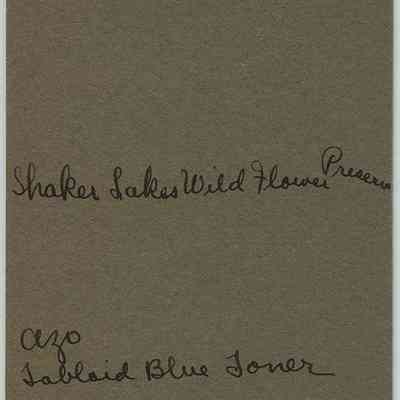 Shaker Lakes Wild Flower Preserv
Azo
Tabloid Blue Toner